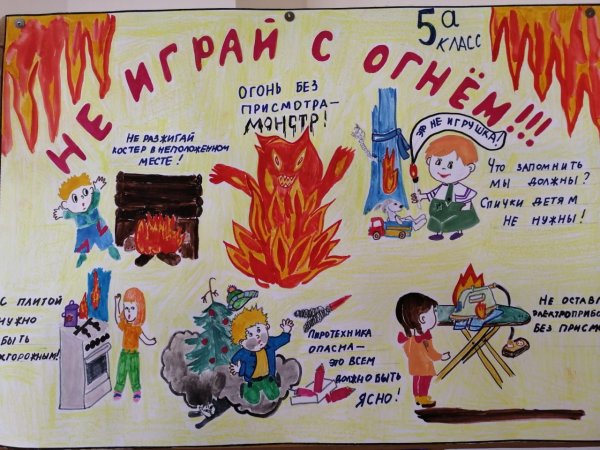 5а
КЛАСС
НЕ ИГРАЙ С ОГНЁМ!!!
ОГОНЬ БЕЗ
ПРИСМОТРА–
МОНСТР!
НЕ РАЗЖИГАЙ
КОСТЕР В НЕПОЛОЖЕННОМ
МЕСТЕ!
ЭТО НЕ ИГРУШКА!
ЧТО ЗАПОМНИТЬ
МЫ ДОЛЖНЫ?
СПИЧКИ ДЕТЯМ
НЕ НУЖНЫ!
С ПЛИТОЙ
НУЖНО
БЫТЬ
ПИРОТЕХНИКА
ОПАСНА–
ЭТО ВСЕМ
ДОЛЖНО БЫТЬ
ЯСНО!
НЕ ОСТАВЛ
ЭЛЕКТРОПРИБО
БЕЗ ПРИСМО